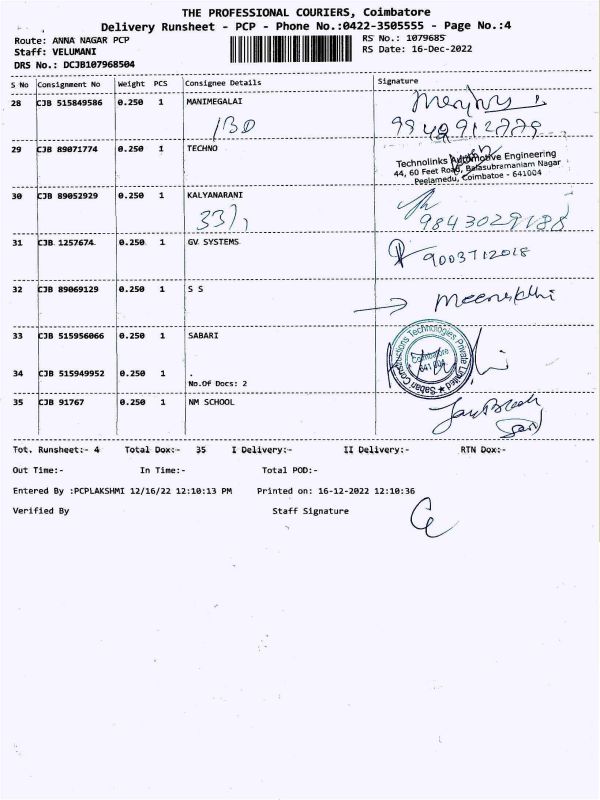 THE PROFESSIONAL COURIERS, Coimbatore
Delivery Runsheet - PCP - Phone No.:0422-3505555 - Page No.:4
Route: ANNA NAGAR PCP RS No.: 1079685
Staff: VELUMANI RS Date: 16-Dec-2022
DRS No.: DCJB107968504
S No Consignment No Weight PCS Consignee Details Signature
28 CJB 515849586 0.250 1 MANIMEGALAI
29 CJB 89071774 0.250 1 TECHNO
Technolinks Automotive Engineering
44, 60 Feet Road, Balasubramaniam Nagar
Peelamedu, Coimbatoe - 641004
30 CJB 89052929 0.250 1 KALYANARANI
9843029188
31 CJB 1257674 0.250 1 GV SYSTEMS
9003712018
32 CJB 89069129 0.250 1 S S
33 CJB 515956066 0.250 1 SABARI
34 CJB 515949952 0.250 1 .
No.Of Docs: 2
35 CJB 91767 0.250 1 NM SCHOOL
Tot. Runsheet:- 4 Total Dox:- 35 I Delivery:- II Delivery:- RTN Dox:-
Out Time:- In Time:- Total POD:-
Entered By :PCPLAKSHMI 12/16/22 12:10:13 PM Printed on: 16-12-2022 12:10:36
Verified By Staff Signature